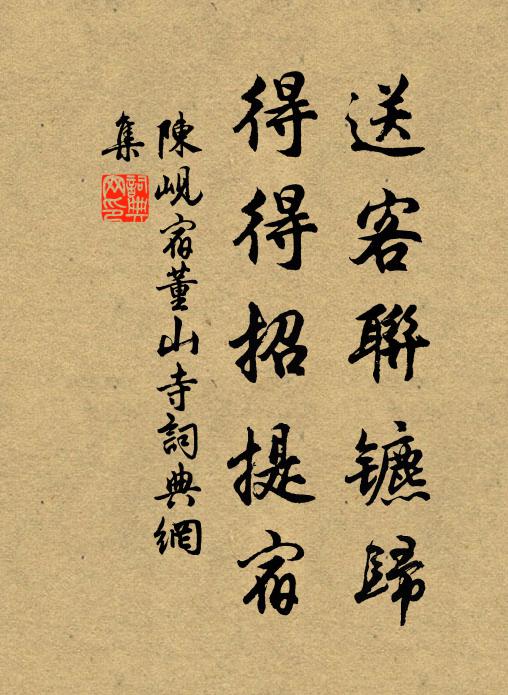 送客聯鑣歸
得得招提宿
陳峴宿董山寺詞典網
集
詞典網印